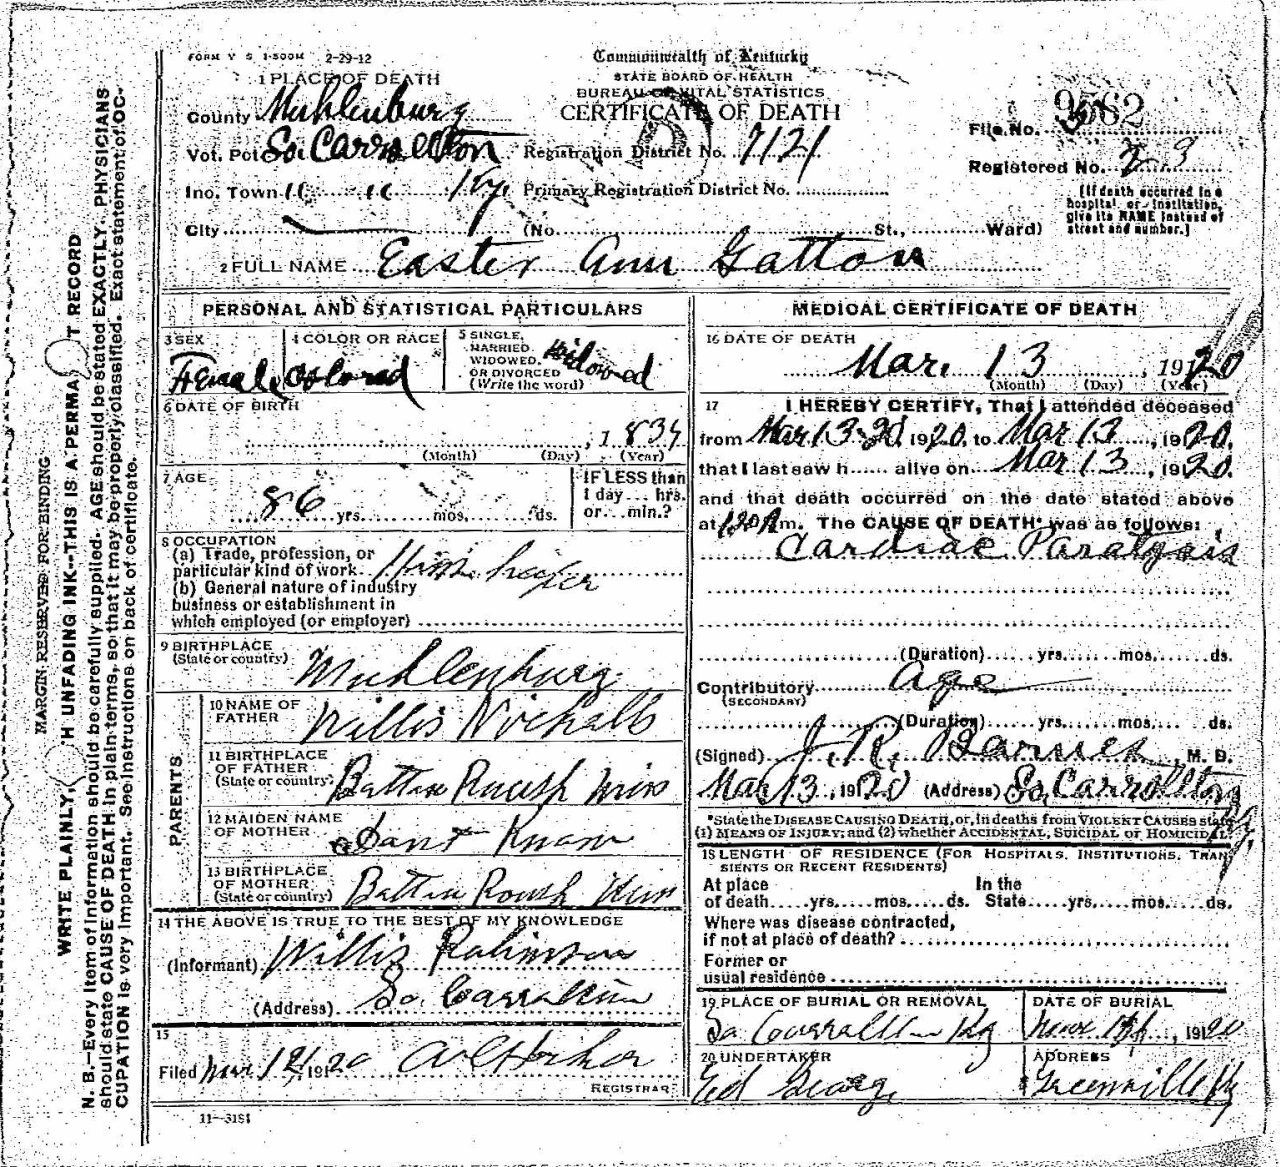 FORM V S 1-500M 2-29-12
Commonwealth of Kentucky
STATE BOARD OF HEALTH
BUREAU OF VITAL STATISTICS
CERTIFICATE OF DEATH
1 PLACE OF DEATH
County Muhlenburg
Vot. Pct So. Carrollton
Inc. Town " " Ky.
City
Registration District No. 7121
Primary Registration District No.
(No. St., Ward)
File No. 9562
Registered No. 23
(If death occurred in a
hospital or institution,
give its NAME instead of
street and number.)
2 FULL NAME Easter Ann Gatton
PERSONAL AND STATISTICAL PARTICULARS
3 SEX Female
4 COLOR OR RACE Colored
5 SINGLE,
MARRIED,
WIDOWED,
OR DIVORCED
(Write the word) Widowed
6 DATE OF BIRTH
, 1834
(Month) (Day) (Year)
7 AGE
86 yrs. mos. ds.
IF LESS than
1 day hrs.
or min.?
8 OCCUPATION
(a) Trade, profession, or
particular kind of work
(b) General nature of industry
business or establishment in
which employed (or employer)
9 BIRTHPLACE
(State or country) Muhlenburg
PARENTS
10 NAME OF
FATHER Willis
11 BIRTHPLACE
OF FATHER
(State or country)
12 MAIDEN NAME
OF MOTHER
13 BIRTHPLACE
OF MOTHER
(State or country)
14 THE ABOVE IS TRUE TO THE BEST OF MY KNOWLEDGE
(Informant) Willis Robinson
(Address) So. Carrollton
15
Filed Mar 1920
REGISTRAR
11-3184
MEDICAL CERTIFICATE OF DEATH
16 DATE OF DEATH
Mar. 13, 1920
(Month) (Day) (Year)
17 I HEREBY CERTIFY, That I attended deceased
from Mar 13 1920, to Mar 13, 1920,
that I last saw h alive on Mar 13, 1920.
and that death occurred on the date stated above
at m. The CAUSE OF DEATH* was as follows:
Cardiac Paralysis
(Duration) yrs. mos. ds.
Contributory Age
(SECONDARY)
(Duration) yrs. mos. ds.
(Signed) J. R. Barnes, M. D.
Mar 13, 1920 (Address) So. Carrollton
*State the DISEASE CAUSING DEATH, or, in deaths from VIOLENT CAUSES state
(1) MEANS OF INJURY; and (2) whether ACCIDENTAL, SUICIDAL or HOMICIDAL.
18 LENGTH OF RESIDENCE (FOR HOSPITALS, INSTITUTIONS, TRAN
SIENTS OR RECENT RESIDENTS)
At place In the
of death yrs. mos. ds. State yrs. mos. ds.
Where was disease contracted,
if not at place of death?
Former or
usual residence
19 PLACE OF BURIAL OR REMOVAL
So Carrollton Ky
DATE OF BURIAL
, 1920
20 UNDERTAKER
Ed George
ADDRESS
Greenville Ky
MARGIN RESERVED FOR BINDING
WRITE PLAINLY, H UNFADING INK--THIS IS A PERMA T RECORD
N. B.--Every item of information should be carefully supplied. AGE should be stated EXACTLY. PHYSICIANS
should state CAUSE OF DEATH in plain terms, so that it may be properly classified. Exact statement of OC-
CUPATION is very important. See instructions on back of certificate.